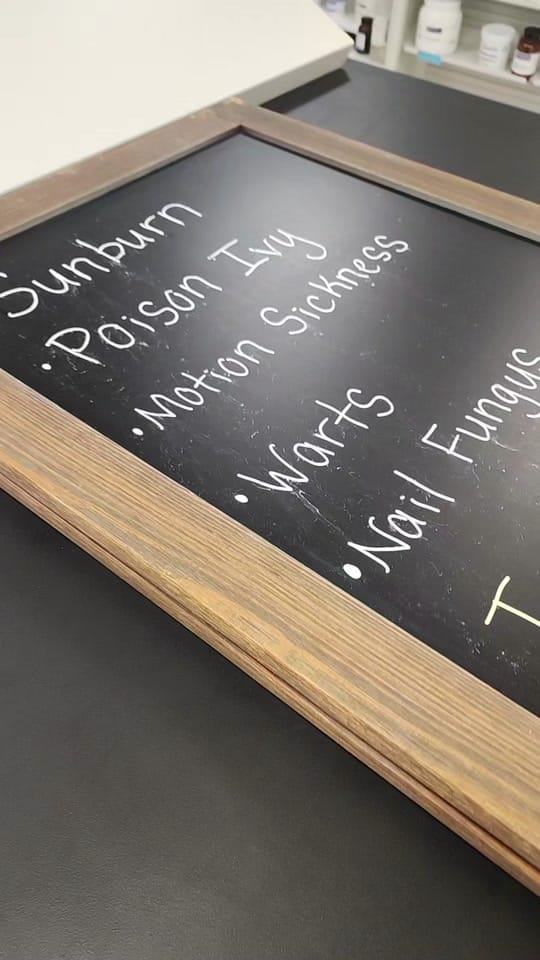 Sunburn
• Poison Ivy
• Motion Sickness
• Warts
• Nail Fungus
T